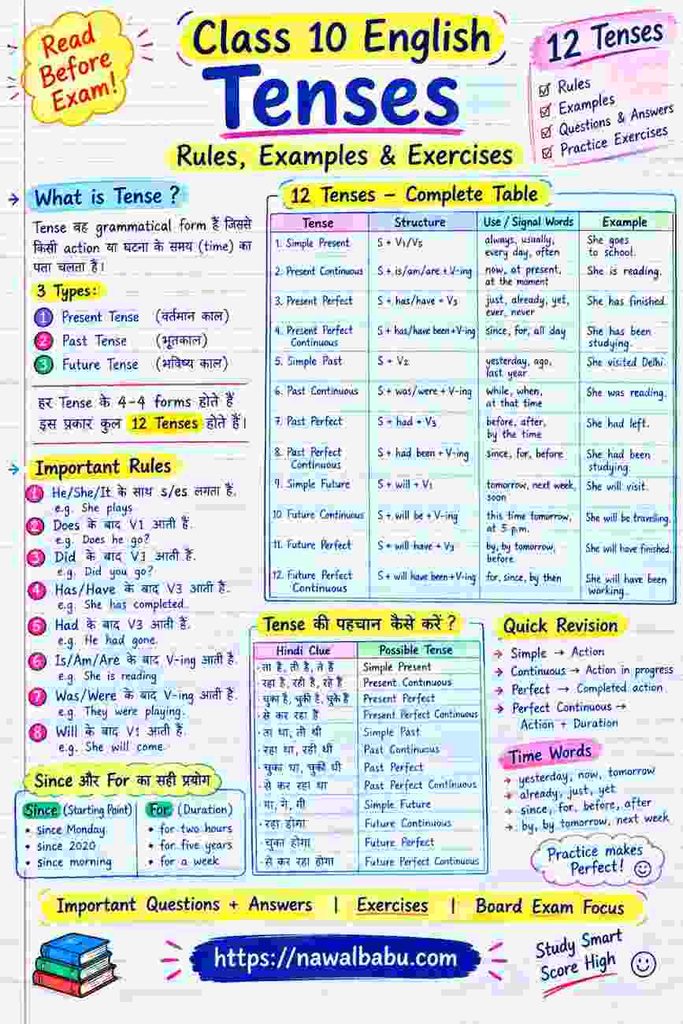 Read
Before
Exam!
Class 10 English
Tenses
Rules, Examples & Exercises
12 Tenses
Rules
Examples
Questions & Answers
Practice Exercises
What is Tense ?
Tense वह grammatical form है जिससे
किसी action या घटना के समय (time) का
पता चलता है।
3 Types:
1 Present Tense (वर्तमान काल)
2 Past Tense (भूतकाल)
3 Future Tense (भविष्य काल)
हर Tense के 4-4 forms होते हैं
इस प्रकार कुल 12 Tenses होते हैं।
Important Rules
1 He/She/It के साथ s/es लगता है.
e.g. She plays
2 Does के बाद V1 आती है.
e.g. Does he go?
3 Did के बाद V1 आती है.
e.g. Did you go?
4 Has/Have के बाद V3 आती है.
e.g. She has completed.
5 Had के बाद V3 आती है.
e.g. He had gone.
6 Is/Am/Are के बाद V-ing आती है.
e.g. She is reading
7 Was/Were के बाद V-ing आती है.
e.g. They were playing.
8 Will के बाद V1 आती है.
e.g. She will come.
Since और For का सही प्रयोग
Since (Starting Point)
• since Monday
• since 2020
• since morning
For (Duration)
• for two hours
• for five years
• for a week
12 Tenses – Complete Table
Tense Structure Use / Signal Words Example
1. Simple Present S + V1/V5 always, usually, She goes
every day, often to school.
2. Present Continuous S + is/am/are + V-ing now, at present, She is reading.
at the moment
3. Present Perfect S + has/have + V3 just, already, yet, She has finished.
ever, never
4. Present Perfect S + has/have been + V-ing since, for, all day She has been
Continuous studying.
5. Simple Past S + V2 yesterday, ago, She visited Delhi.
last year
6. Past Continuous S + was/were + V-ing while, when, She was reading.
at that time
7. Past Perfect S + had + V3 before, after, She had left.
by the time
8. Past Perfect S + had been + V-ing since, for, before She had been
Continuous studying.
9. Simple Future S + will + V1 tomorrow, next week, She will visit.
soon
10. Future Continuous S + will be + V-ing this time tomorrow, She will be traveling.
at 5 p.m.
11. Future Perfect S + will have + V3 by, by tomorrow, She will have finished.
before
12. Future Perfect S + will have been + V-ing for, since, by then She will have been
Continuous working.
Tense की पहचान कैसे करें ?
Hindi Clue Possible Tense
ता है, ती है, ते हैं Simple Present
रहा है, रही है, रहे हैं Present Continuous
चुका है, चुकी है, चुके हैं Present Perfect
से कर रहा है Present Perfect Continuous
ता था, ती थी Simple Past
रहा था, रही थी Past Continuous
चुका था, चुकी थी Past Perfect
से कर रहा था Past Perfect Continuous
गा, गे, गी Simple Future
रहा होगा Future Continuous
चुका होगा Future Perfect
से कर रहा होगा Future Perfect Continuous
Quick Revision
→ Simple → Action
→ Continuous → Action in progress
→ Perfect → Completed action
→ Perfect Continuous →
Action + Duration
Time Words
→ yesterday, now, tomorrow
→ already, just, yet
→ since, for, before, after
→ by, by tomorrow, next week
Practice makes
Perfect!
Important Questions + Answers | Exercises | Board Exam Focus
https://nawalbabu.com
Study Smart
Score High